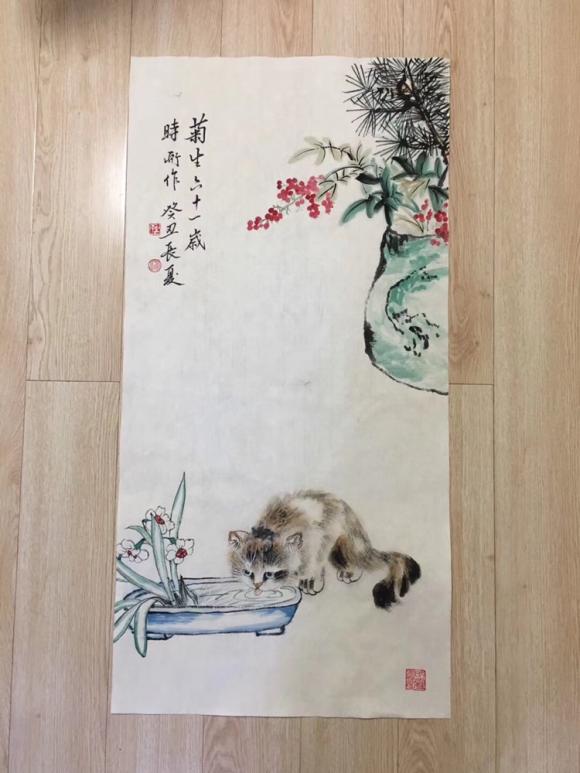 菊生六十一歲
時所作癸丑長夏